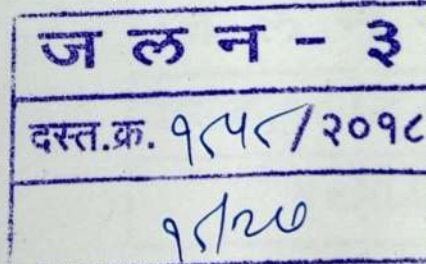 ज ल न - ३
दस्त.क्र. १८५८/२०१८
१८/२७